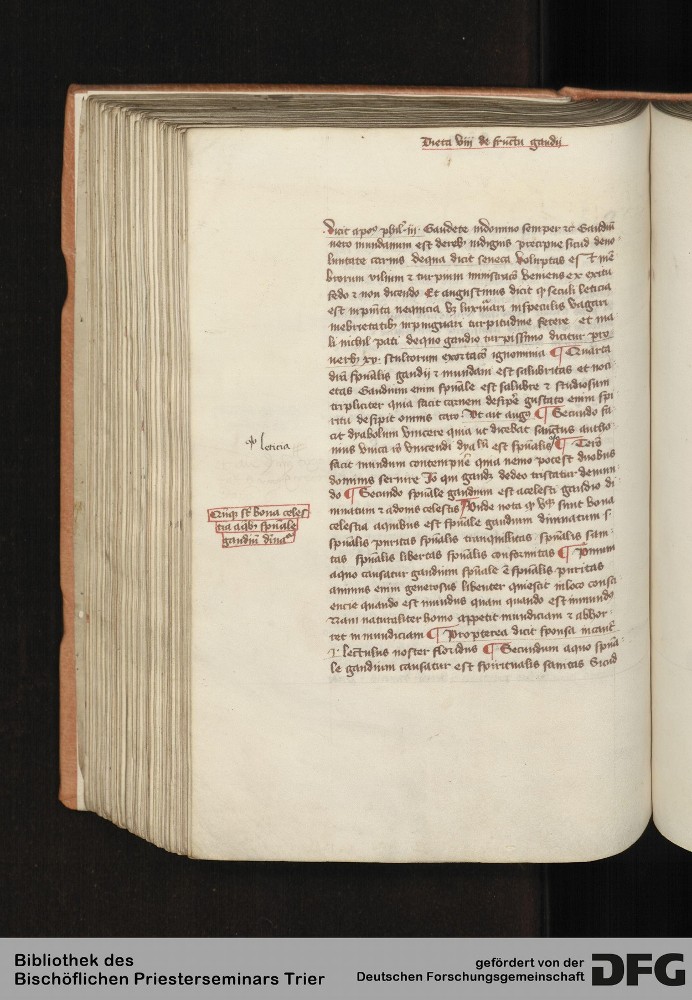 Dieta viij de fructu gaudij
dicit apoꝰ phil' iij. Gaudete in domino semper ⁊c Gaudiū
vero mundanum est dereb' indignis precipue sicud de vo
luntate carnis de qua dicit seneca voluptas est mē
brorum vilium ⁊ turpium ministracō veniens ex exitu
fedo ⁊ non dicendo Et augustinus dicit ꝙ seculi leticia
est inpunita nequicia vꝫ luxuriari in speculis vagari
in ebrietatibꝫ inpinguari turpitudine fetere et ma
li nichil pati de quo gaudio turpissimo dicitur pro
uerb' xv. stultorum exortacō ignominia ¶ Quarta
dīa spūalis gaudij ⁊ mundani est salubritas et noci
etas Gaudium enim spūale est salubre ⁊ studiosum
tripliciter quia facit carnem desipē gustato enim spi
ritu desipit omnis caro. Vt ait augꝰ ¶ Secundo fa
cit dyabolum vincere quia ut dicebat sanctus antho
nius vnica rō vincendi dyalū est spūalis ¶ Tercō
facit mundum contempnē quia nemo potest duobus
dominis seruire Iō qui gaudꝫ de deo tristatur de mun
do ¶ Secundo spūale gaudium est a celesti gaudio di
minatum ⁊ a donis celestis ¶ Vnde nota ꝙ vꝙ sunt bona
celestia a quibus est spūale gaudium diminatum s.
spūalis puritas spūalis tranquillitas. spūalis sani
tas spūalis libertas spūalis conformitas ¶ Primum
a quo causatur gaudium spūale ē spūalis puritas
animus enim generosus libenter quiescit in loco consci
encie quando est mundus quam quando est inmundo
Nam naturaliter homo appetit mundiciam ⁊ abhor
ret inmundiciam ¶ Propterea dicit sponsa in cant'
.i. lectulus noster floridus ¶ Secundum a quo spūa
le gaudium causatur est spiritualis sanitas Sicud
leticia
Quinqꝫ st' bona celes
tia a qbꝫ spūale
gaudiū dīnaꝰ
Bibliothek des
Bischöflichen Priesterseminars Trier
gefördert von der
Deutschen Forschungsgemeinschaft
DFG